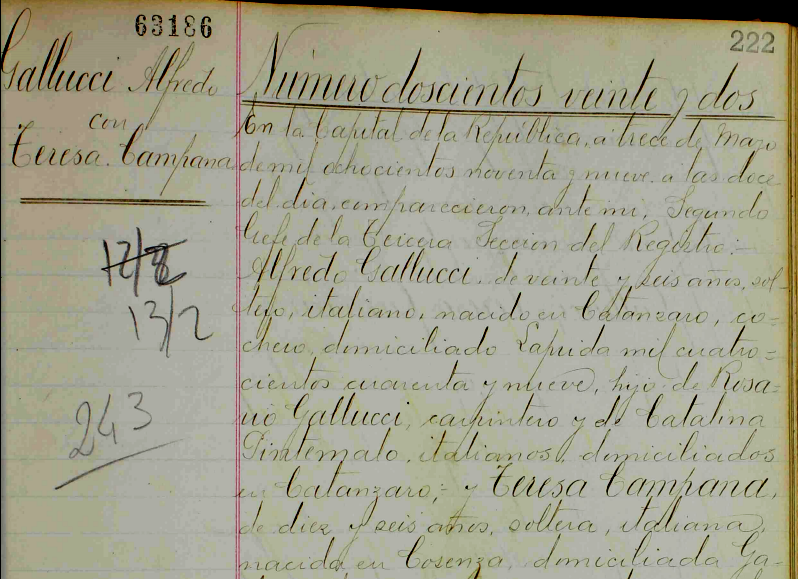 63186
222
Gallucci Alfredo
con
Teresa Campana
12/2
13/2
243
Número doscientos veinte y dos
En la Capital de la República, a trece de Mayo
de mil ochocientos noventa y nueve a las doce
del día, comparecieron, ante mi, Segundo
Gefe de la Tercera Seccion del Registro:-
Alfredo Gallucci, de veinte y seis años, sol-
tero, italiano, nacido en Catanzaro, co-
chero, domiciliado Laprida mil cuatro=
cientos cuarenta y nueve, hijo de Rosa=
rio Gallucci, carpintero y de Catalina
italianos, domiciliados
en Catanzaro,- y Teresa Campana,
de diez y seis años, soltera, italiana,
nacida en Cosenza, domiciliada Ga-